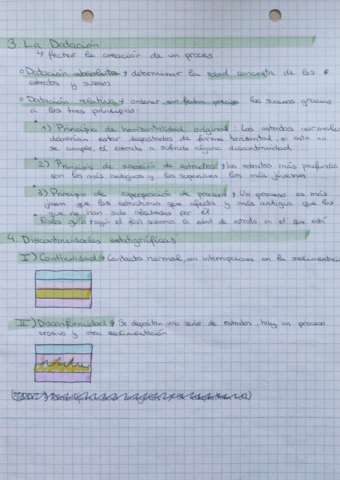 3. La Datación
↳ fechar la creación de un proceso
○ Datación absoluta → determinar la edad concreta de los
estratos y sucesos
○ Datación relativa → ordenar sin fechas precisas los sucesos gracias
a los tres principios:
1) Principio de horizontalidad original: Los estratos normalmente
deberían estar depositados de forma horizontal, si esto no
se cumple, el estrato a sufrido alguna discontinuidad
2) Principio de sucesión de estratos → los estratos más profundos
son los más antiguos y los superiores los más jóvenes
3) Principio de superposición de procesos → Un proceso es más
joven que las estructuras que afecta y más antiguo que las
que no han sido afectadas por él
fósil sabemos la edad de estrato en el que está
4. Discontinuidades estratigráficas
I) Continuidad → Contacto normal, sin interrupciones en la sedimentación
II) Disconformidad → Se deposita una serie de estratos, hay un proceso
erosivo y otra sedimentación